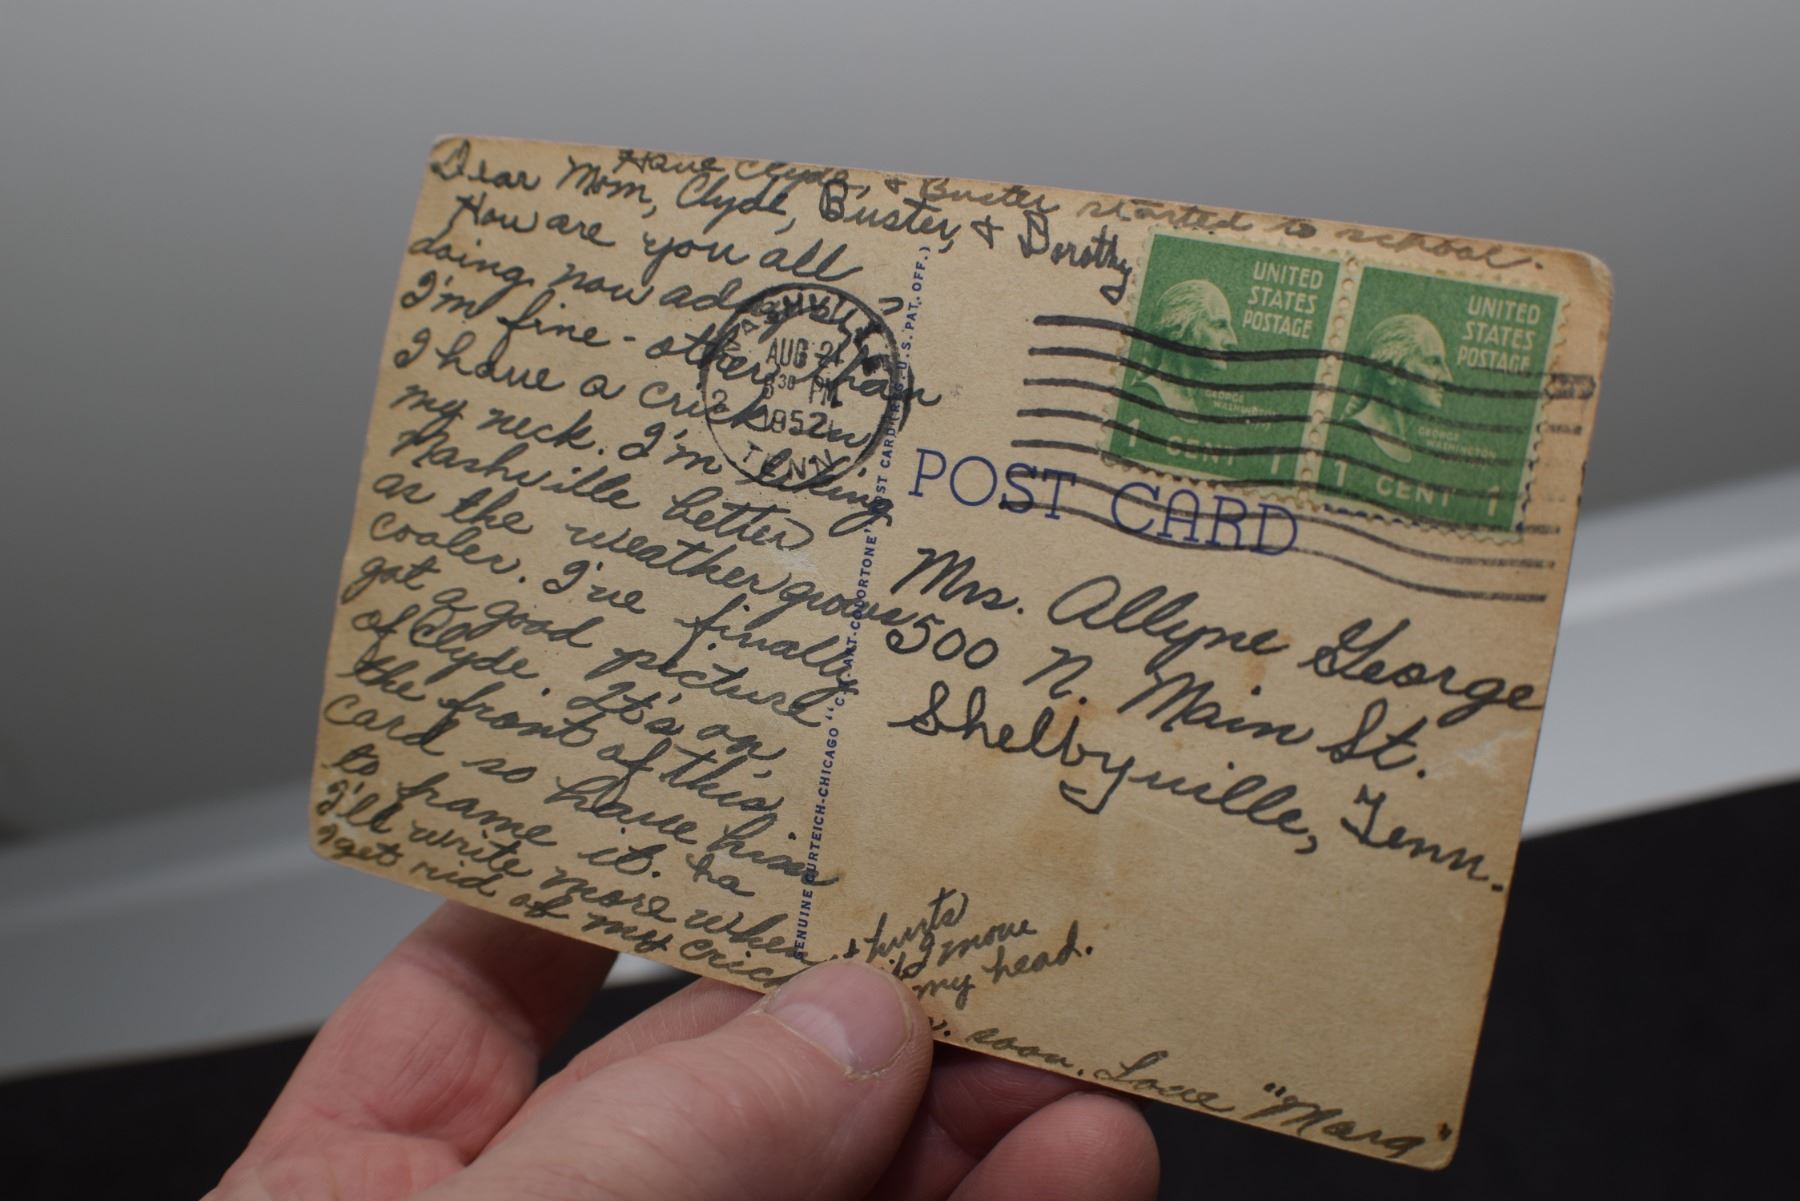 Have Clyde, & Buster started to school.
Dear Mom, Clyde, Buster, & Dorothy
How are you all
doing now adays?
I'm fine - other than
I have a crick in
my neck. I'm liking
Nashville better
as the weather grows
cooler. I've finally
got a good picture
of Clyde. It's on
the front of this
card so have him
to frame it. Ha
I'll write more when it hurts
if I move
my head.
get rid of my crick
soon. Love "Marg"
NASHVILLE
AUG 21
30 PM
1952
TENN
2
GENUINE CURTEICH-CHICAGO "C.T. ART-COLORTONE" POST CARD (REG. U.S. PAT. OFF.)
POST CARD
UNITED
STATES
POSTAGE
GEORGE
WASHINGTON
1 CENT 1
UNITED
STATES
POSTAGE
GEORGE
WASHINGTON
1 CENT 1
Mrs. Allyne George
500 N. Main St.
Shelbyville, Tenn.